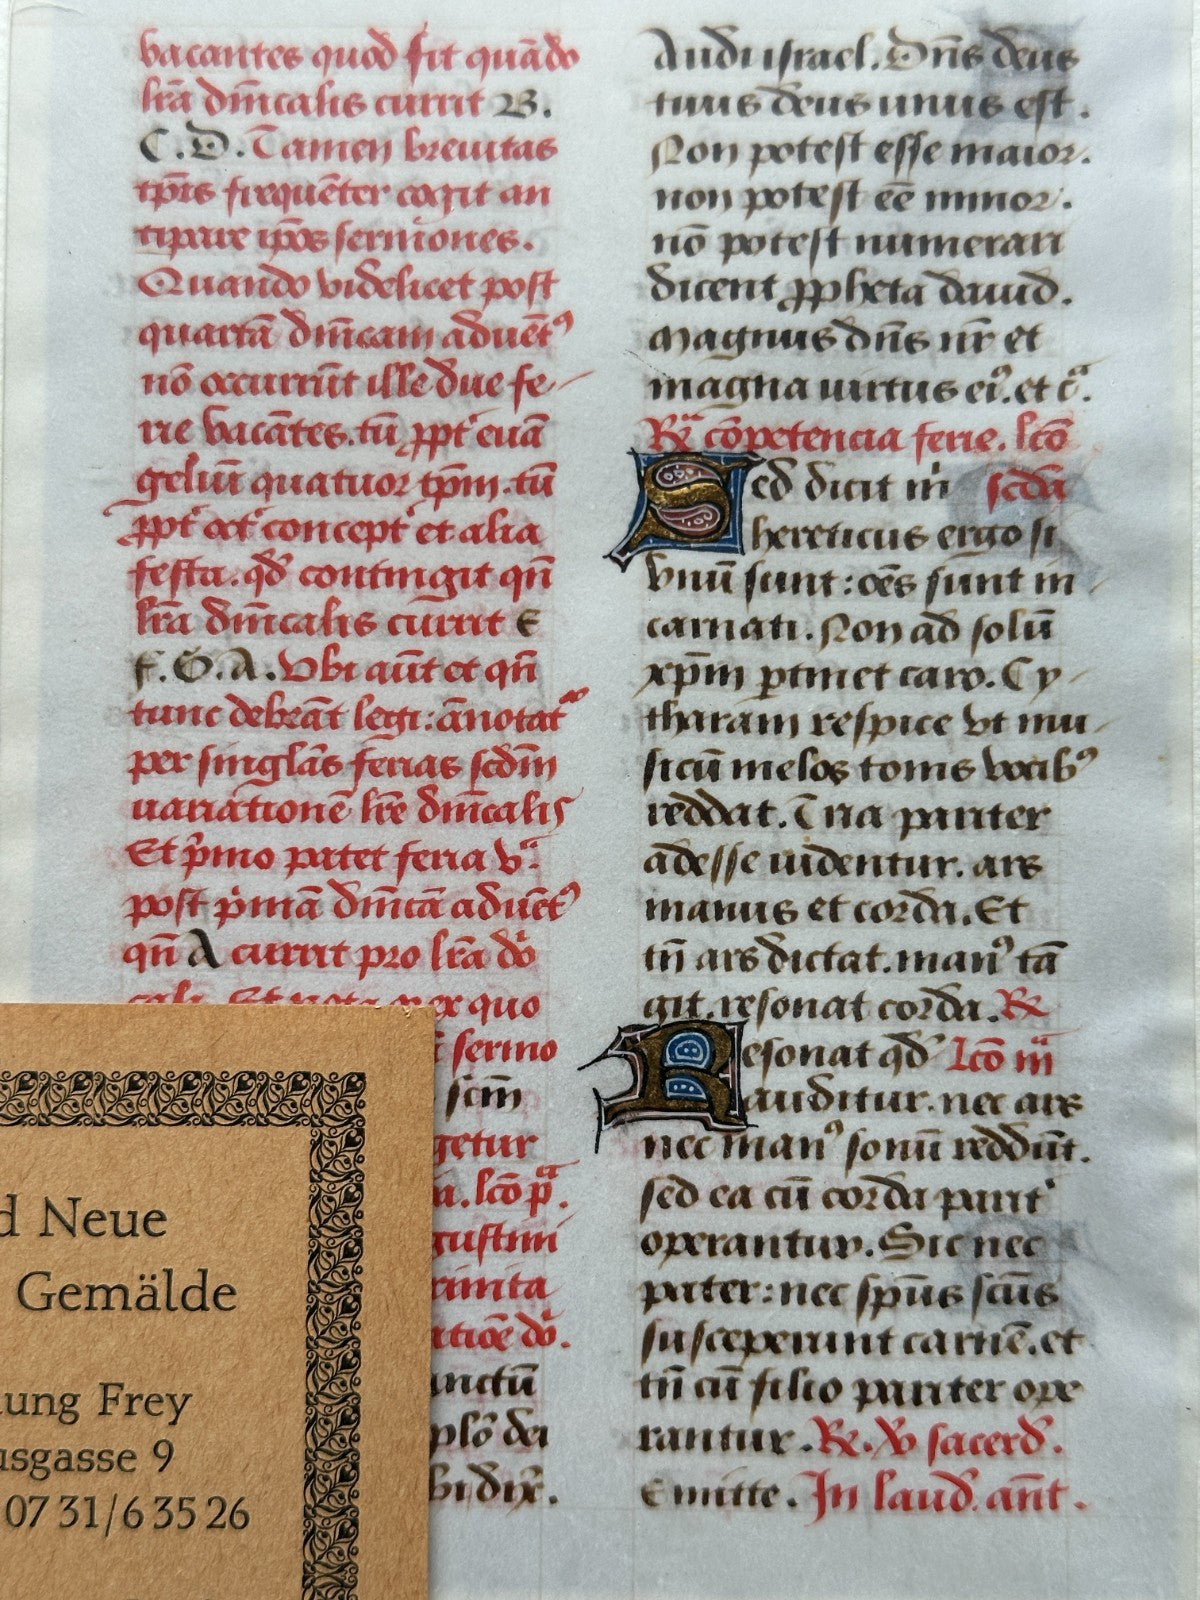 vacantes quod fit quādo
lr̄a dn̄icalis currit B.
C.D. Tamen breuitas
tp̄ris frequēter cogit an
ticipare ip̄os sermones.
Quando videlicet post
quartā dn̄icam aduēt⁹
nō occurrūt ille due fe-
rie vacātes. tū ꝓpt' euā
geliū quatuor tp̄m. tū
ꝓpt' oct' concept' et alia
festa. qd̄ contingit qn̄
lr̄a dn̄icalis currit E
F.G.A. Vbi aūt et qn̄
tunc debeāt legi: ānotat᷑
per singlās ferias scd̄m
uariationē lr̄e dn̄icalis
Et p̄mo patet feria vᵃ.
post p̄mā dn̄icā aduēt⁹
qn̄ A currit pro lr̄a dō
cali. Et nota ex quo
sermo
scm̄
getur
lcō pᵃ.
gustini
rinita
atiōe dō.
unctū
plō dei
ibi dix̄.
Audi israel. Dn̄s deus
tuus deus unus est.
Non potest esse maior.
non potest eē minor.
nō potest numerari
dicent ꝓpheta dauid.
Magnus dn̄s nr̄ et
magna uirtus ei⁹. et cᵃ.
Rᵃ cōpetencia ferie. lcō
Sed dicit m' scdā
hereticus ergo si
vnū sunt: oēs sunt in
carnati. Non ad solū
xp̄m ꝑtinet caro. Cy-
tharam respice vt mu-
sicū melos tonis vocib⁹
reddat. Tria pariter
adesse uidentur. ars
manus et corda. Et
tn̄ ars dictat. man⁹ tā
git. resonat corda. R
Resonat qd̄ Lcō iiiᵃ
auditur. nec ars
nec man⁹ sonū reddūt.
sed ea cū corda parit'
operantur. Sic nec
pater: nec sp̄us scūs
susceperunt carnē. et
tn̄ cū filio pariter ope
rantur. R. V sacerd̄.
Emitte. In laud. ānt.
d Neue
Gemälde
ung Frey
usgasse 9
07 31/6 35 26